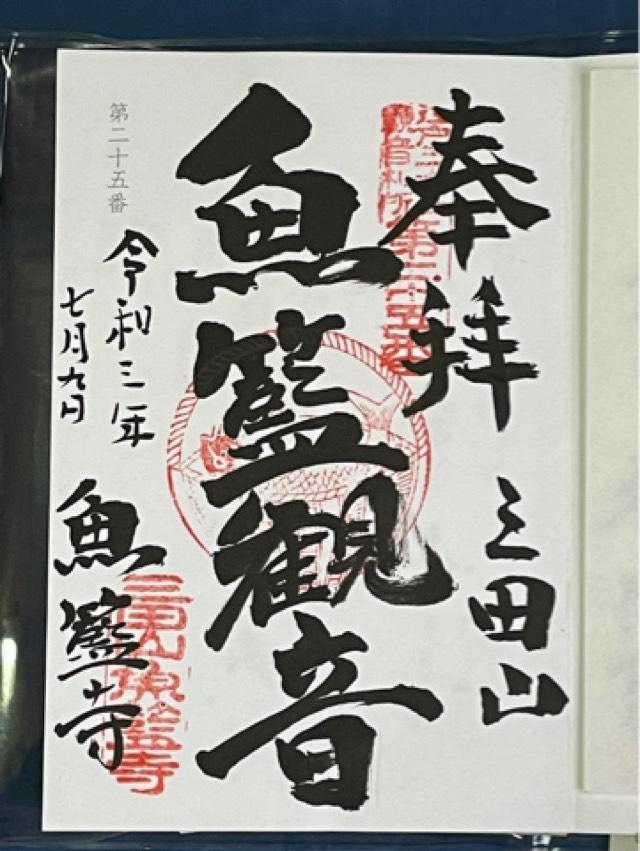 奉拝
三田山
江戸三十三観音札所第二十五番
魚籃観音
第二十五番
令和三年
七月九日
魚籃寺
三田山魚籃寺